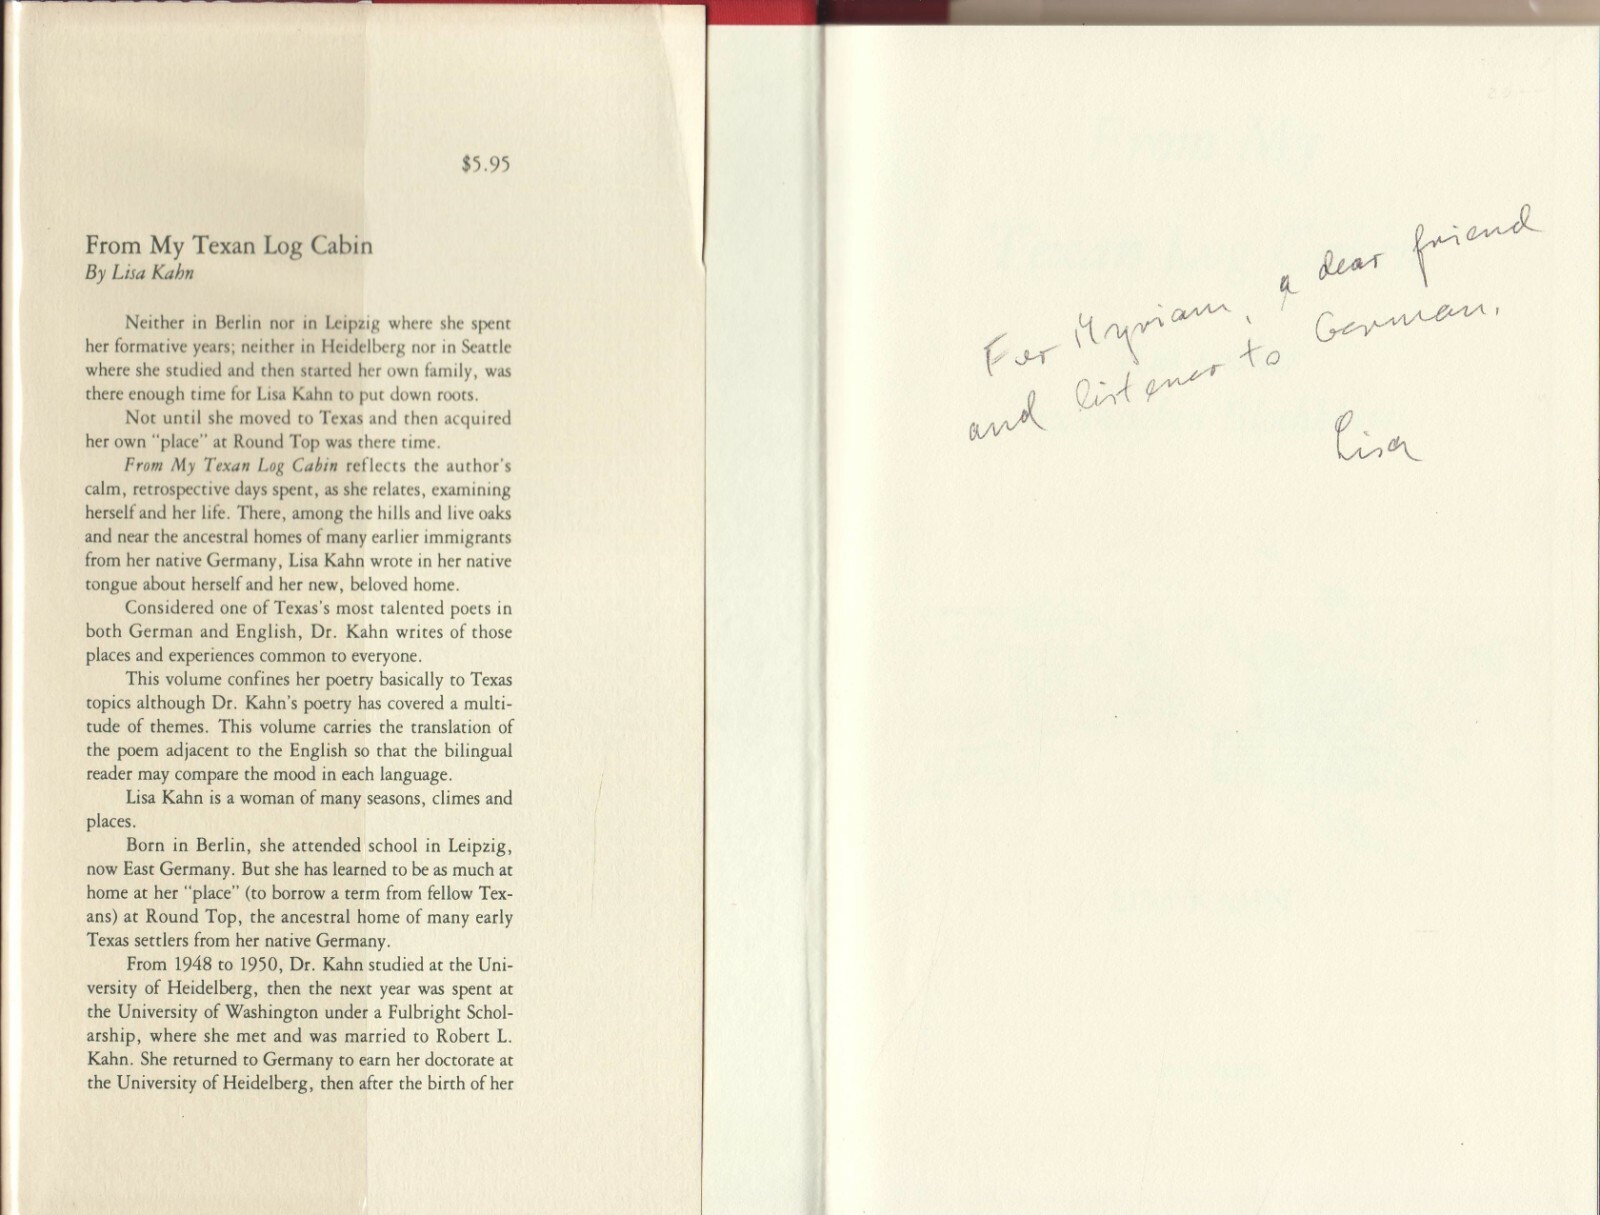 $5.95
From My Texan Log Cabin
By Lisa Kahn
Neither in Berlin nor in Leipzig where she spent
her formative years; neither in Heidelberg nor in Seattle
where she studied and then started her own family, was
there enough time for Lisa Kahn to put down roots.
Not until she moved to Texas and then acquired
her own "place" at Round Top was there time.
From My Texan Log Cabin reflects the author's
calm, retrospective days spent, as she relates, examining
herself and her life. There, among the hills and live oaks
and near the ancestral homes of many earlier immigrants
from her native Germany, Lisa Kahn wrote in her native
tongue about herself and her new, beloved home.
Considered one of Texas's most talented poets in
both German and English, Dr. Kahn writes of those
places and experiences common to everyone.
This volume confines her poetry basically to Texas
topics although Dr. Kahn's poetry has covered a multi-
tude of themes. This volume carries the translation of
the poem adjacent to the English so that the bilingual
reader may compare the mood in each language.
Lisa Kahn is a woman of many seasons, climes and
places.
Born in Berlin, she attended school in Leipzig,
now East Germany. But she has learned to be as much at
home at her "place" (to borrow a term from fellow Tex-
ans) at Round Top, the ancestral home of many early
Texas settlers from her native Germany.
From 1948 to 1950, Dr. Kahn studied at the Uni-
versity of Heidelberg, then the next year was spent at
the University of Washington under a Fulbright Schol-
arship, where she met and was married to Robert L.
Kahn. She returned to Germany to earn her doctorate at
the University of Heidelberg, then after the birth of her
Fuer Myriam, a dear friend
and listener to German.
Lisa